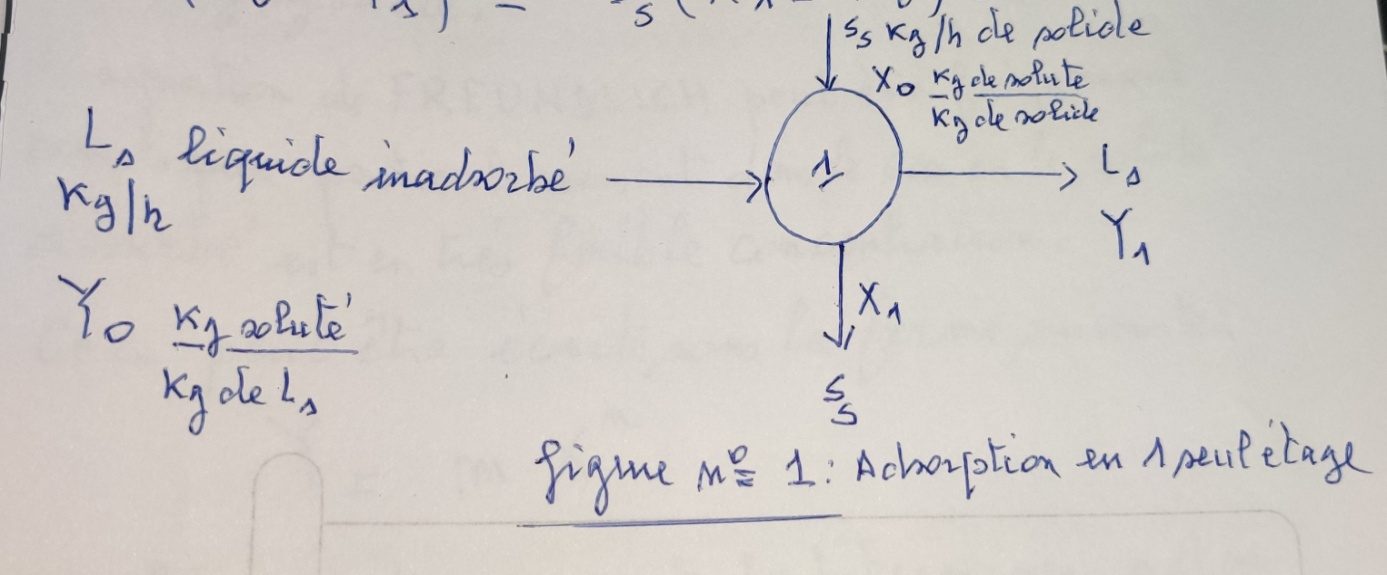 S_S Kg/h de solide
X_0 Kg de soluté
Kg de solide
L_s liquide inadsorbé
Kg/h
1
L_s
Y_1
Y_0 Kg soluté
Kg de L_s
X_1
S_S
figure n° 1 : Adsorption en 1 seul étage